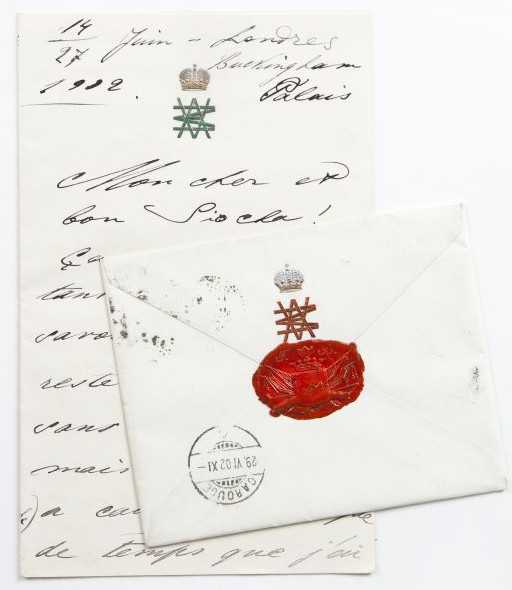 14/27 Juin - Londres
Buckingham
1902. Palais
Mon cher et
bon Siocha!
Ça
tan
savo
reste
sans
mais
a cau que
de temps que j'ai
29.VI.02 XI -
CAROUGE